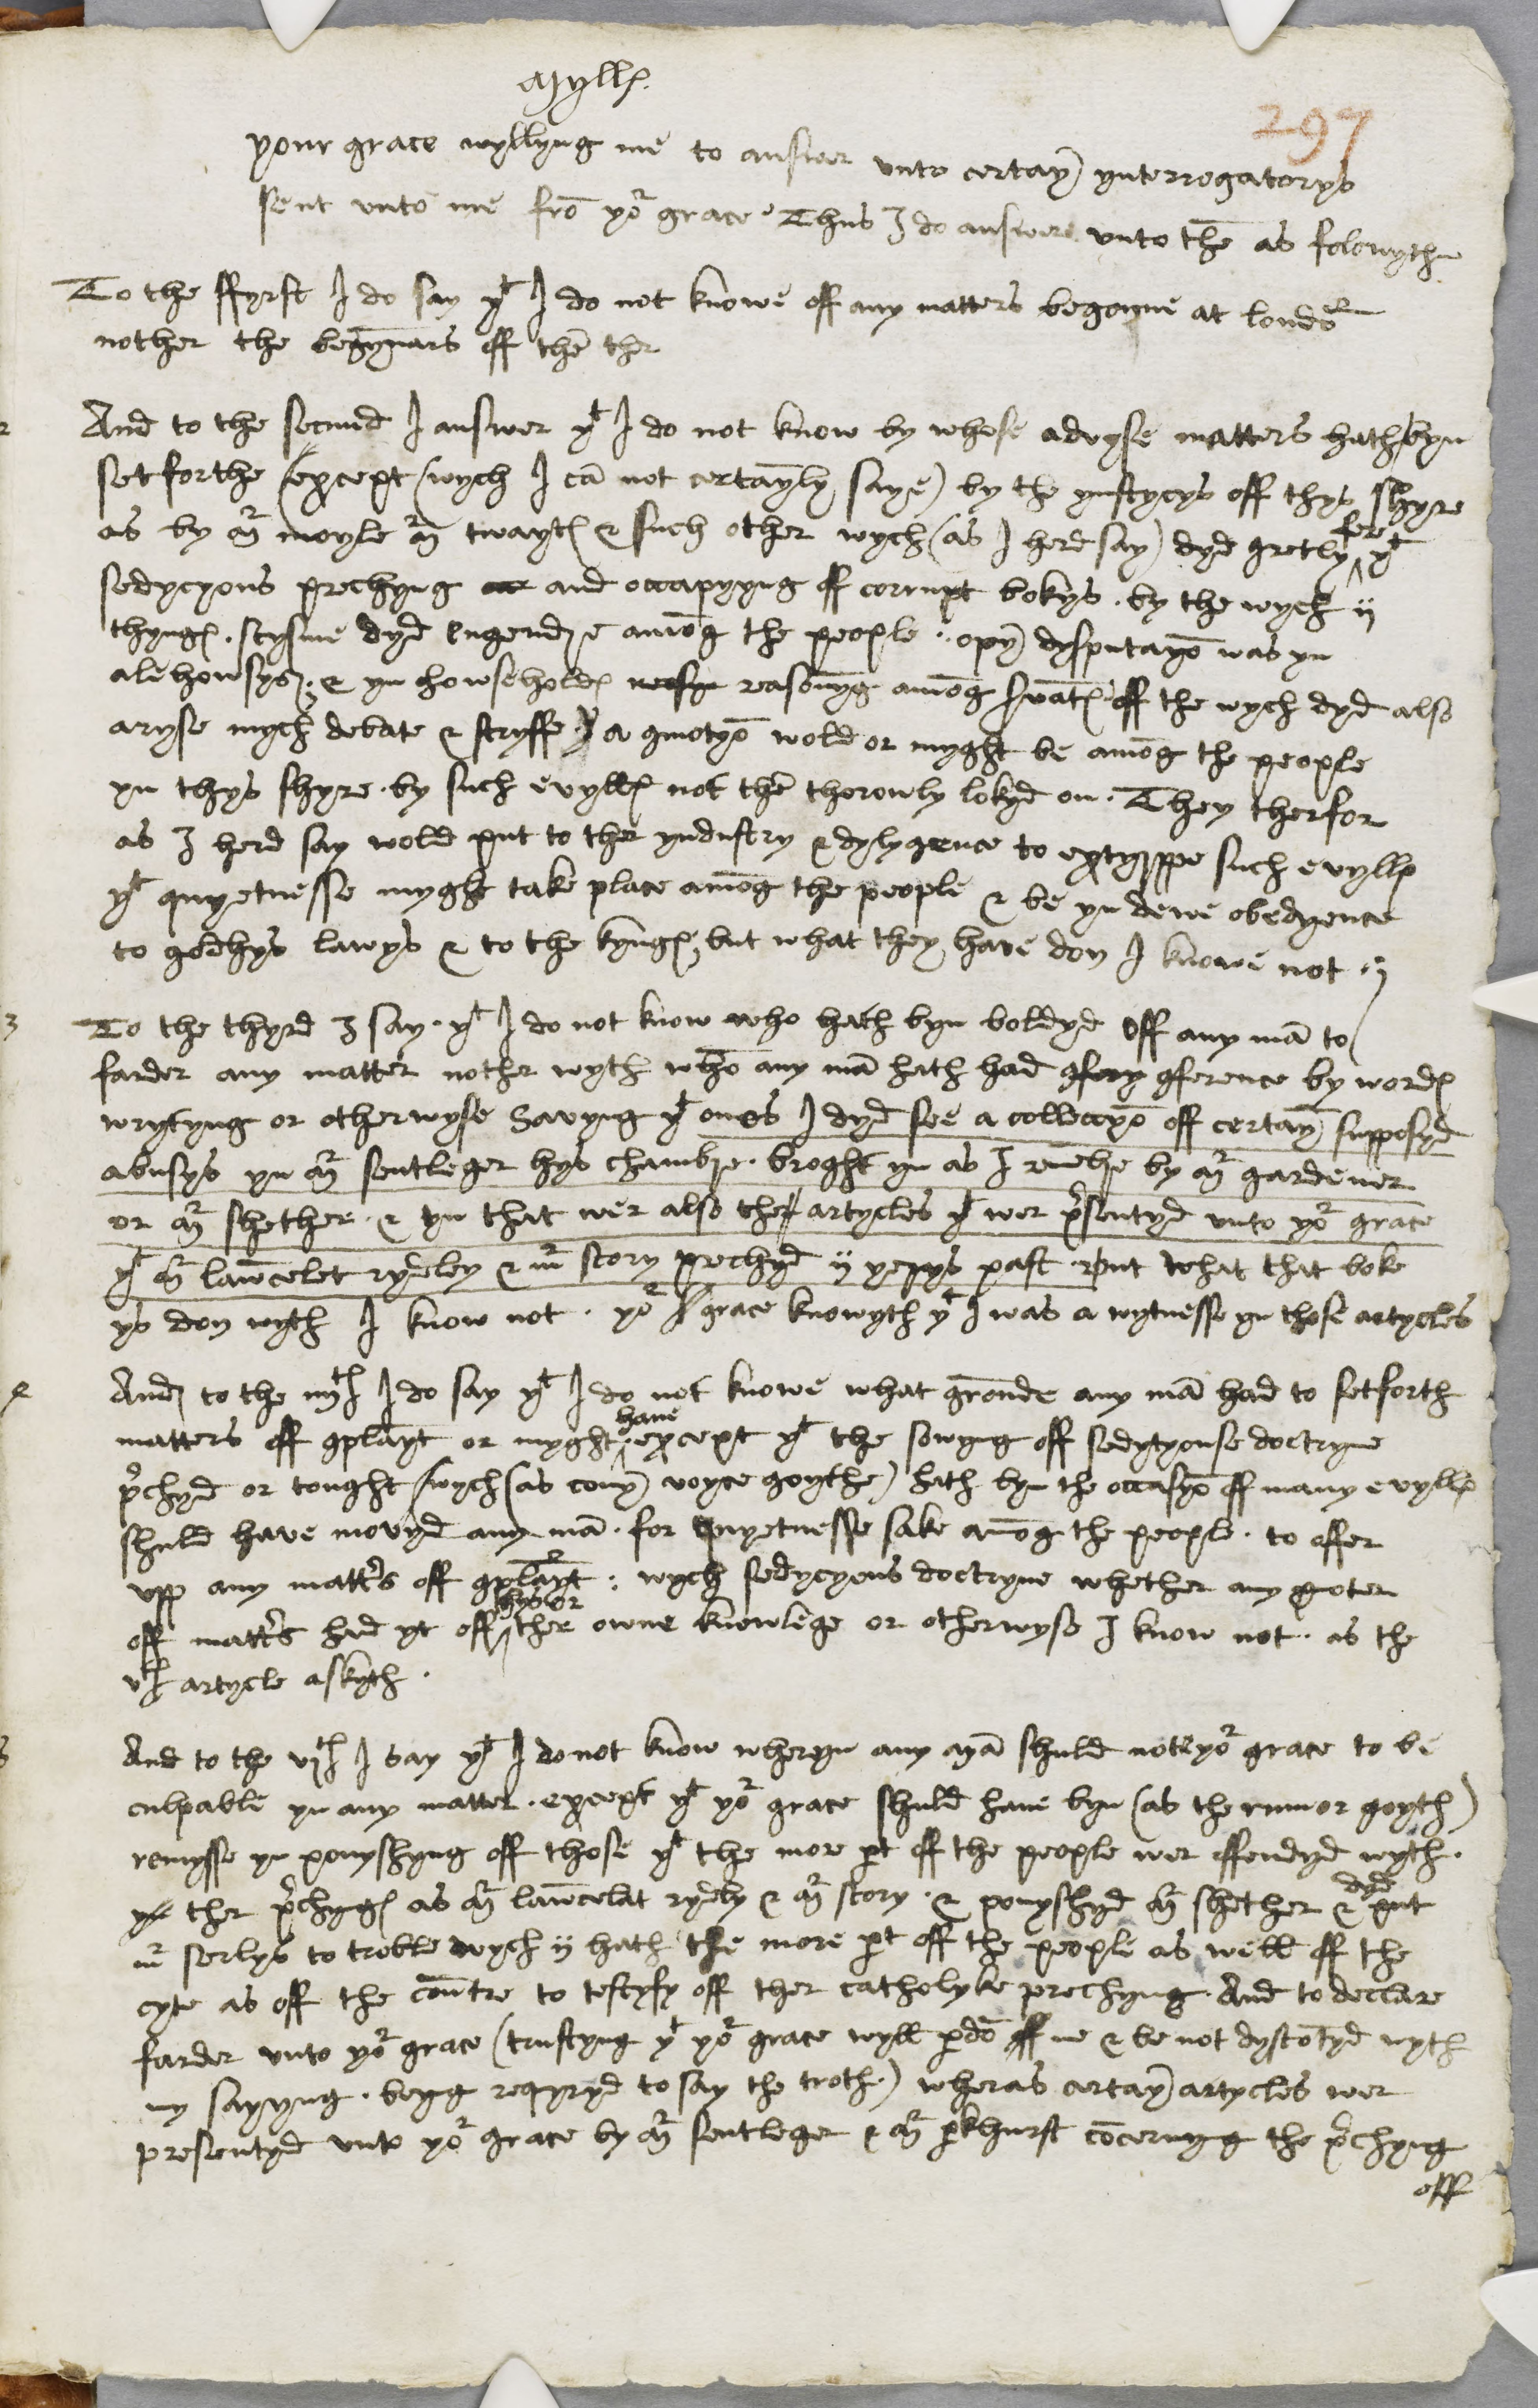 Mylls
297
your grace wyllyng me to answer unto certayn ynterrogatorys
sent unto me frō yor grace Thus I do answere unto thē as folowyth
To the ffyrst I do say yt I do not knowe off any matters begonne at londō
nother the begynnars off thē ther
And to the secund I answer yt I do not know by whose advyse matters hath byn
set forthe (except (wych I cā not certaynly saye) by the yustycys off thys shyre
as by mr moyle mr twayts & such other wych (as I herd say) dyd gretly fere yt
sedycyous prechyng and occapyyng off corrupt bokys . by the wych ij
thyngs . scysme dyd engendre amōg the people . opyn dysputayō was yn
alehowsys . & yn howseholds reasonyg amōg s̄vāts off the wych dyd also
aryse mych debate & stryffe yt a cmotyō wold or myght be amōg the people
yn thys shyre . by such evylls not thē thorowly lokyd on . They therfor
as I herd say wold put to ther yndustry & dylygence to extyrppe such evylls
yt quyetnesse myght take place amōg the people & be yn dewe obedyence
to god hys lawys & to the kyngs, but what they have don I knowe not .
3 To the thyrd I say . yt I do not know who hath byn boldyd off any mā to
farder any matter nother wyth whō any mā hath had cfery cference by words
wrytyng or otherwyse Savyng yt ones I dyd see a colleccyō off certayn supposyd
abusys yn mr sentleger hys chambre . broght yn as I remēbre by mr gardener
or mr shether . & yn that wer also the artycles yt wer p̄sentyd unto yor grace
yt mr lawncelet rydeley & mr story prechyd ij yerys past but what that boke
ys don wyth I know not . yor grace knowyth yt I was a wytnesse yn those artycles
And to the iiijth I do say yt I do not knowe what gronde any mā had to set forth
matters off cplaynt or myght have except yt the sowyng off sedytyouse doctryne
p̄chyd or tought (wych (as comyn voyce goythe) hath byn the occasyō off many evylls
shuld have movyd any mā . for quyetnesse sake amōg the people . to offer
upp any matt's off cplaynt . wych sedycyous doctryne whether any pmoter
off matt's had yt off hys or ther owne knowlege or otherwyse I know not . as the
vth artycle askyth .
And to the vjth I say yt I do not know wheryn any mā shuld note yor grace to be
culpable yn any matter . except yt yor grace shuld have byn (as the rumor goyth)
remysse yn ponyshyng off those yt the more pt off the people wer offendyd wyth .
yn ther p̄chygs as mr lawncelat rydely & mr story . & ponyshyd mr shether & dyd put
mr serlys to troble wych ij hath the more pt off the people as well off the
cyte as off the countre to testyfy off ther catholyke prechyng . And to declare
farder unto yor grace (trustyng yt yor grace wyll pdō off me & be not dyscōtyd wyth
my sayyng . beyg reqyryd to say the troth) wheras certayn artycles wer
presentyd unto yor grace by mr sentleger & mr pkhurst cōcernyng the p̄chyng
off